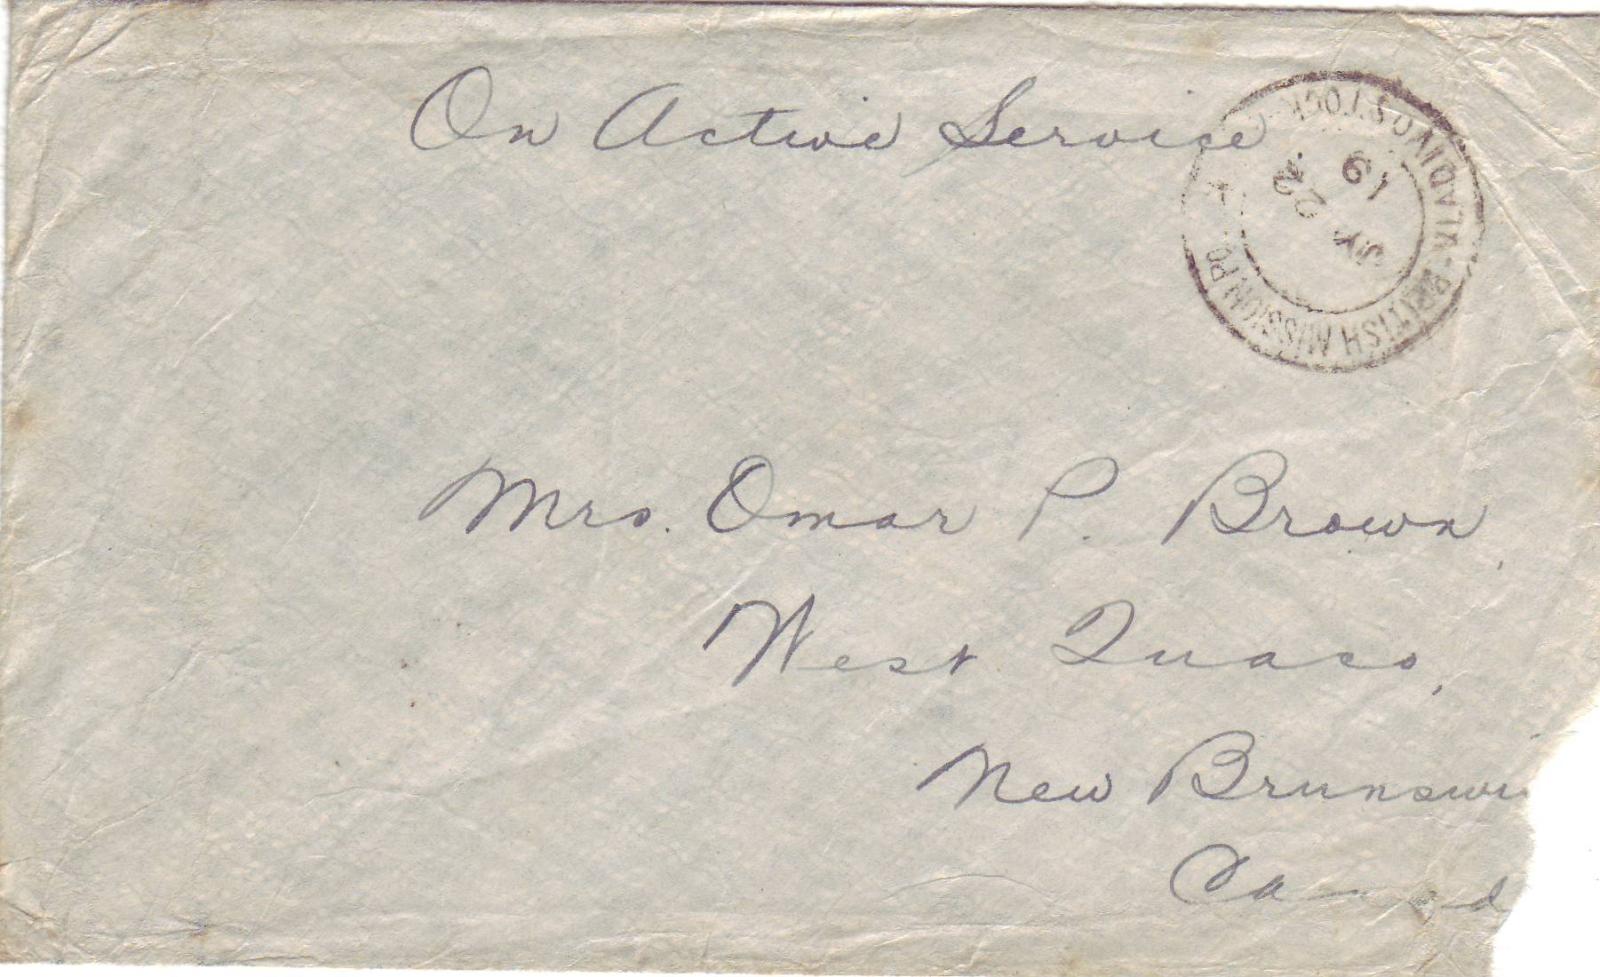 On Active Service
BRITISH MISSION PO · VLADIVOSTOCK
JY 22
19
Mrs. Omar P. Brown,
West Quaco,
New Brunswi
Canad